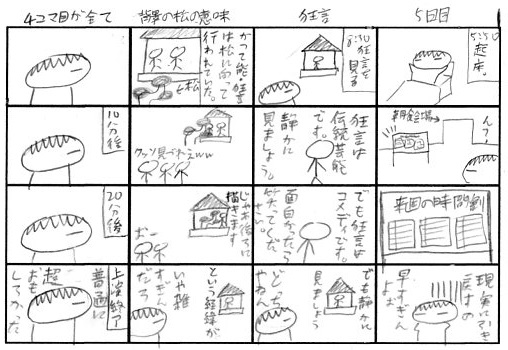 5日目
5:50
起床。
んっ?
朝食会場→
来週の時間割
現実に引き
戻すの
早すぎん
よぉ
狂言
8:30
狂言を
見る
狂言は
伝統芸能
です。
静かに
見ましょう。
でも狂言は
コメディです。
面白かったら
笑ってくだ
さい。
でも静かに
見ましょう
どっち
やねん
背景の松の意味
かつて能・狂言
は松に向って
行われていた。
←松
クッソ見づれぇww
じゃあ後ろに
描きます
おー
という経緯が
いや雑
すぎん
だろ
4コマ目が全て
10分後
20分後
上演終了
普通に
超
おも
しろかった